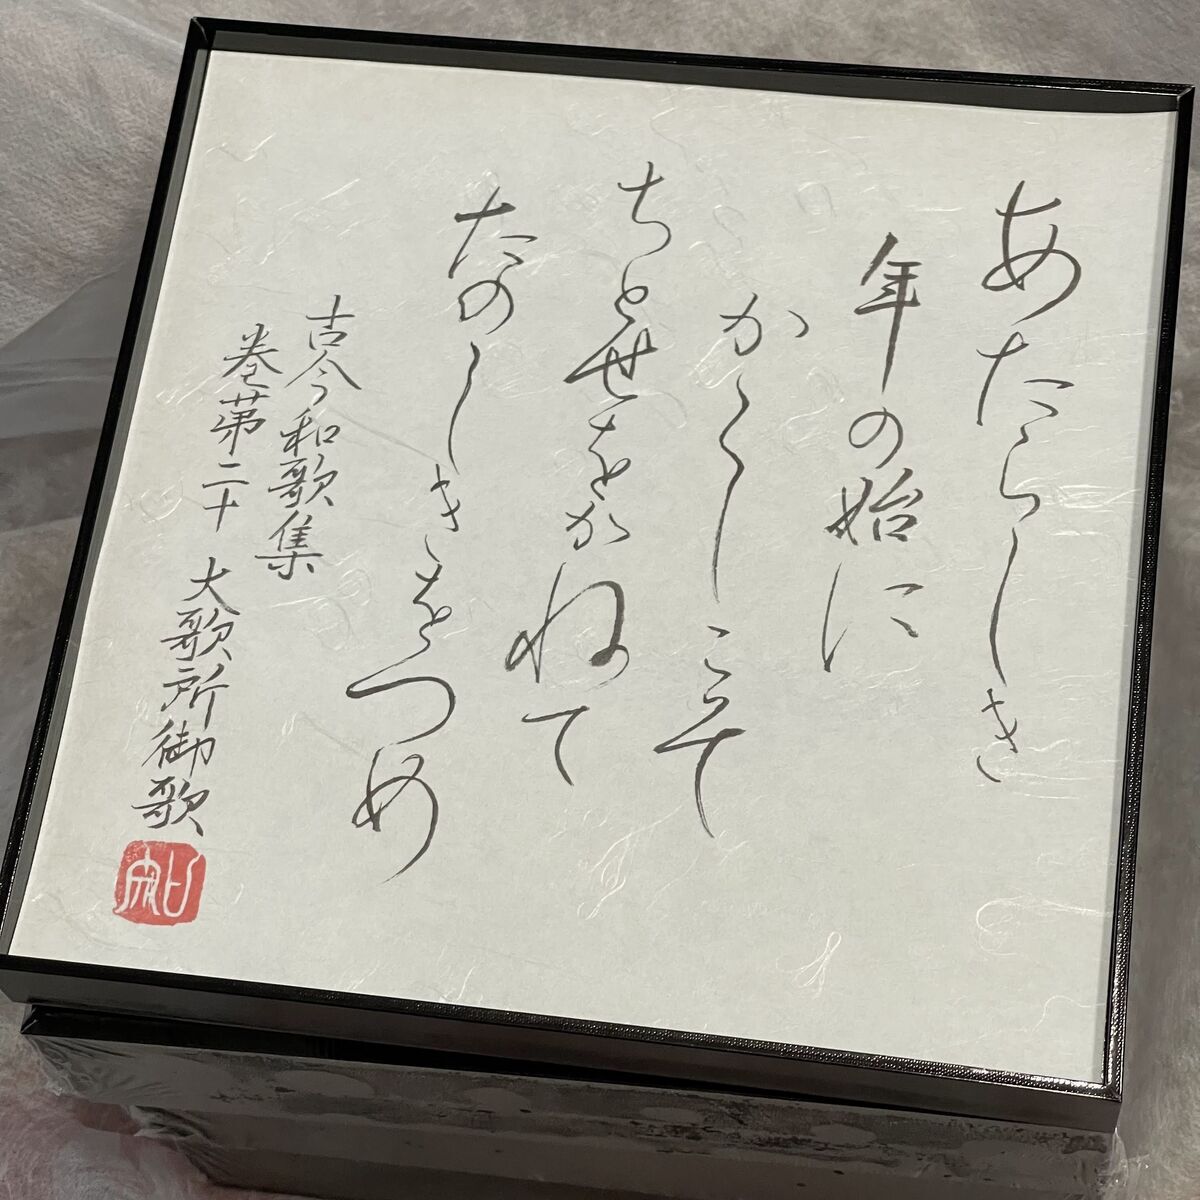 あたらしき
年の始に
かくしこそ
ちとせをかねて
たのしきをつめ
古今和歌集
巻第二十 大歌所御歌